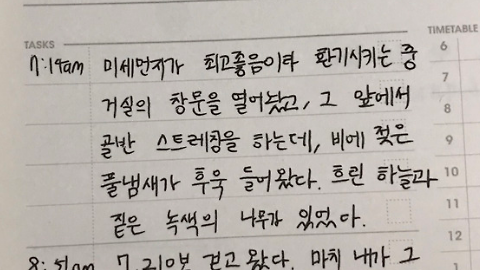 TASKS
TIMETABLE
7:19am 미세먼지가 최고좋음이라 환기시키는 중
6
거실의 창문을 열어놨고, 그 앞에서
7
8
골반 스트레칭을 하는데, 비에 젖은
9
풀냄새가 후욱 들어왔다. 흐린 하늘과
10
짙은 녹색의 나무가 있었다.
11
12
8:51am 7,210보 걷고 왔다. 마치 내가 그
1